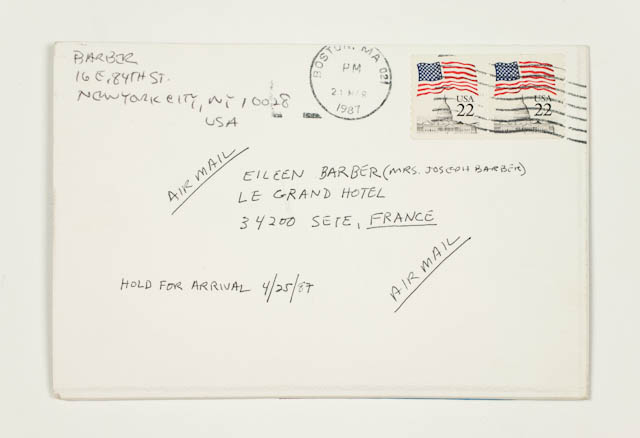 BARBER
16 E. 84TH ST.
NEW YORK CITY, NY 10028
USA
BOSTON, MA 021
PM
1987
USA
22
USA
22
AIR MAIL
EILEEN BARBER (MRS. JOSEPH BARBER)
LE GRAND HOTEL
34200 SETE, FRANCE
AIR MAIL
HOLD FOR ARRIVAL 4/25/87